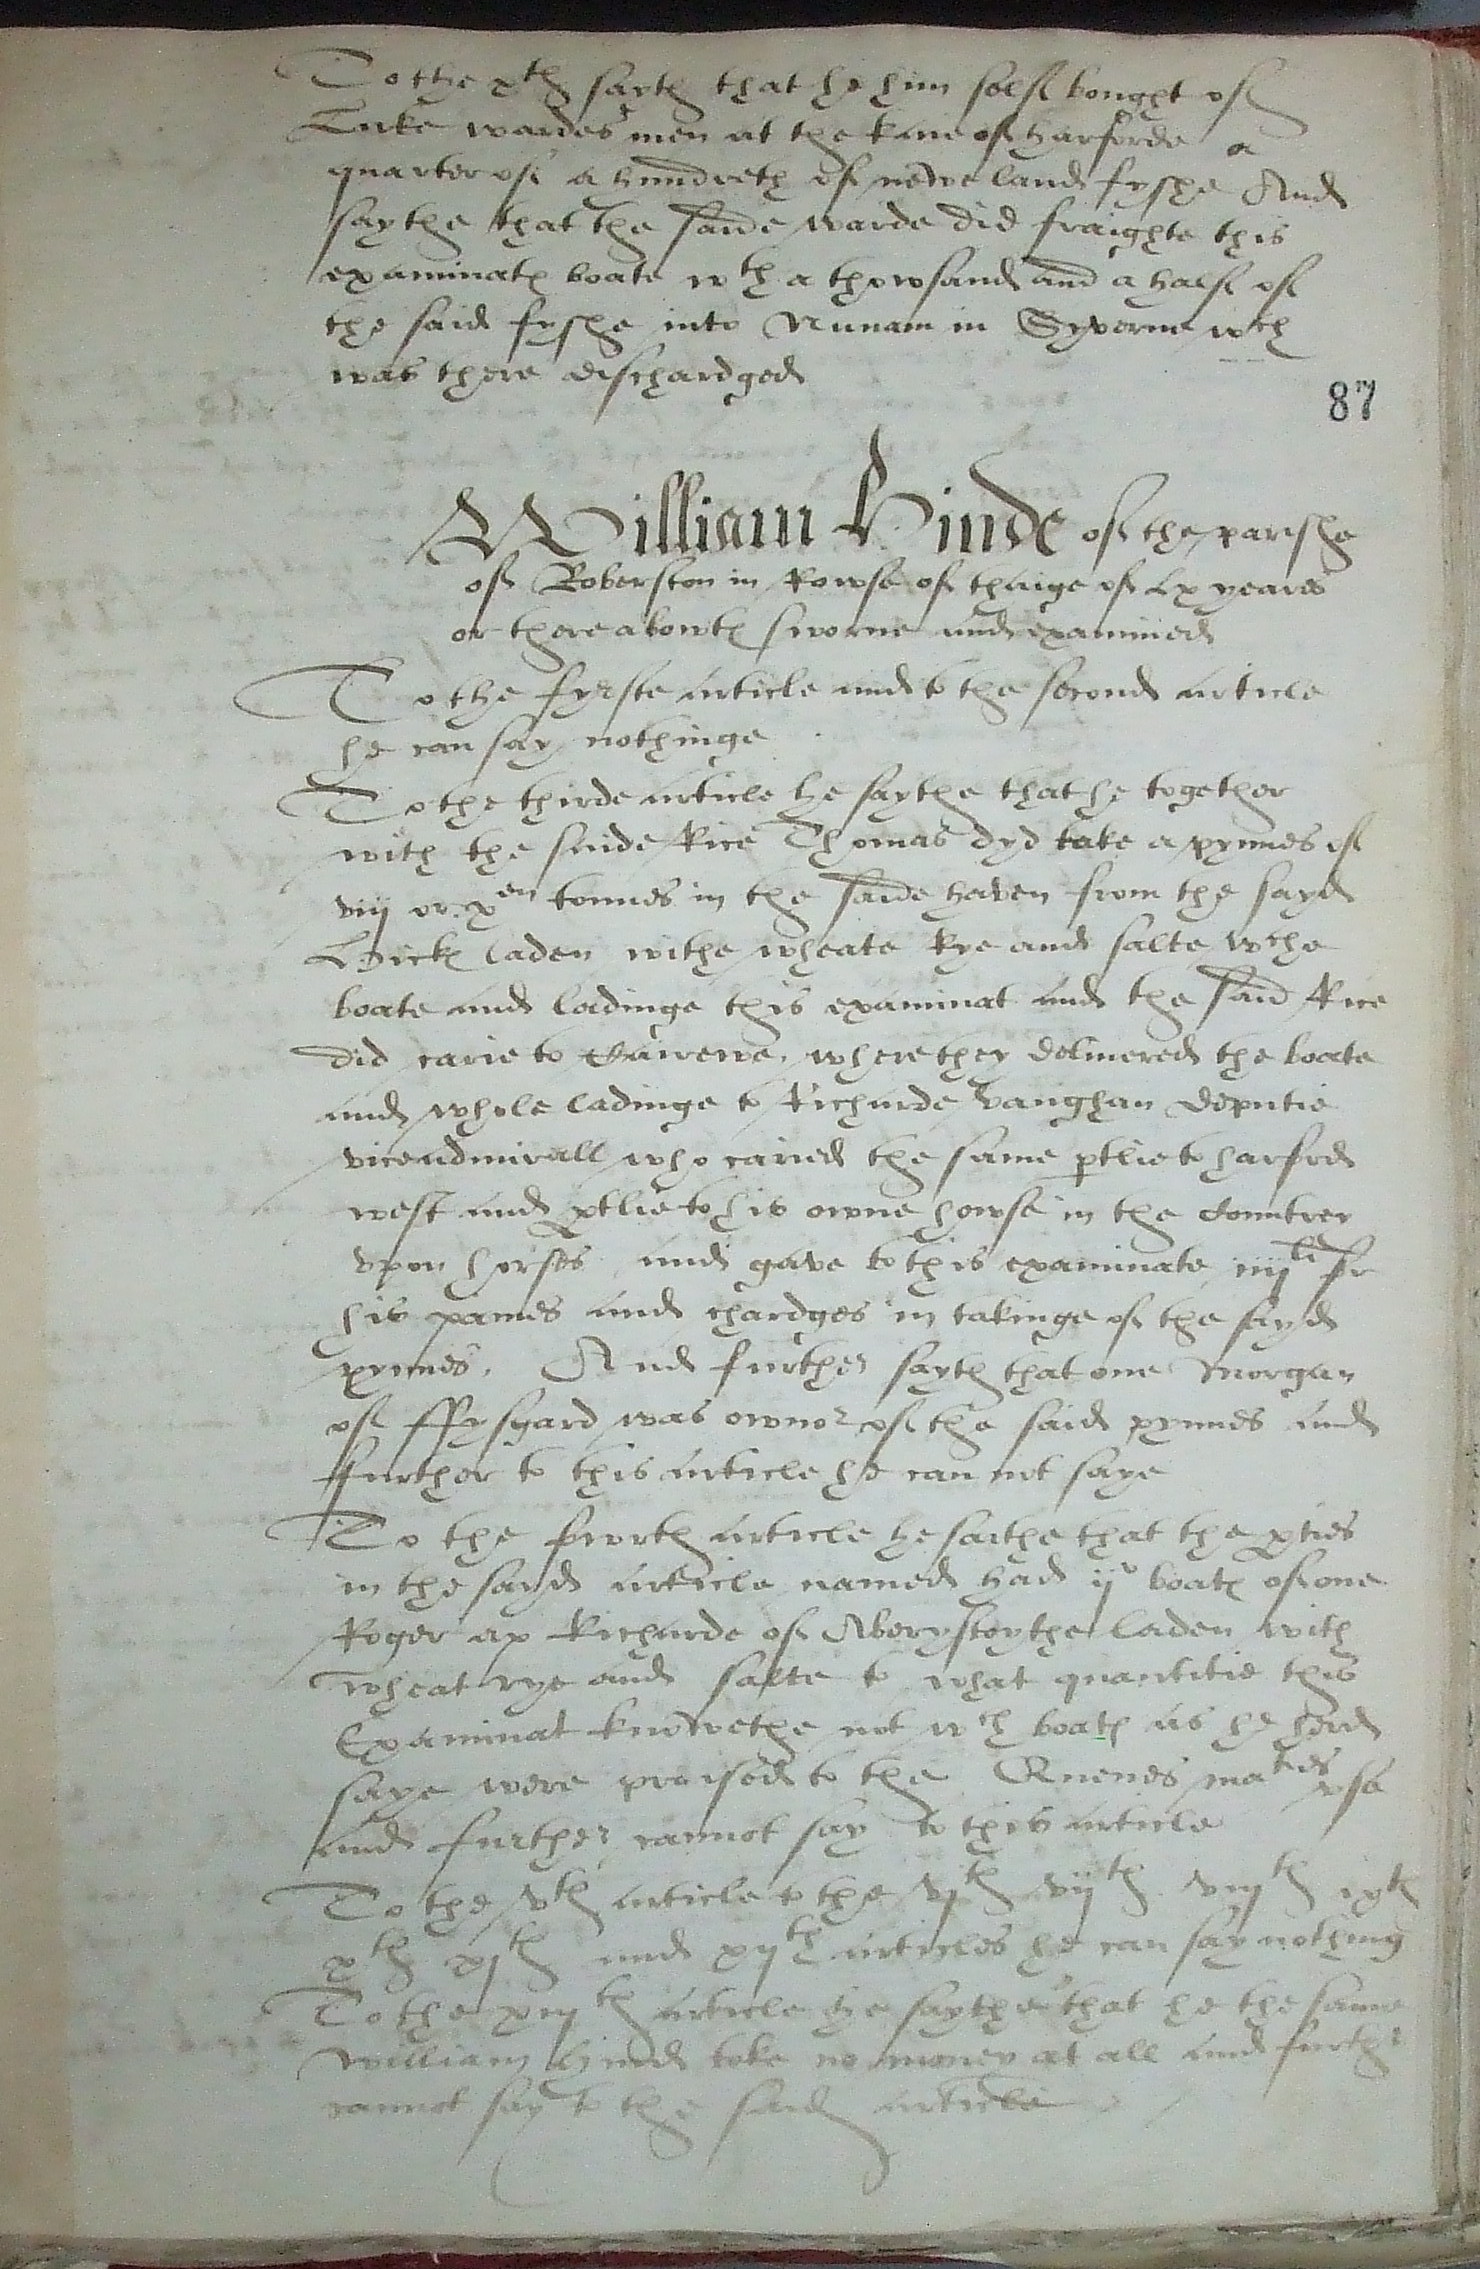 To the xth sayth that he him self bought of
Luke wardes men at the kaie of harforde a
quarter of a hundreth of newe land fyshe And
saythe that the saide warde did fraighte this
examinates boate wth a thowsand and a half of
the said fyshe into Nunam in Syverne wch
was there dischardged
87
William Hinde of the parishe
of Roberston in Rowse of thaige of lx yeares
or thereabowtes sworne and examined
To the fyrste article and to the second article
he can say nothinge
To the thirde article he saythe that he together
with the saide Rice Thomas dyd take a pynnes of
viij or xen tonnes in the saide haven from the sayd
Hicks laden withe wheate Rye and salte wche
boate and ladinge this examinat and the said Rice
did carie to Carewe where they delivered the boate
and whole ladinge to Richarde vaughan deputie
viceadmirall who caried the same ptlie to harford
west and ptlie to his owne howse in the Countrey
vpon horses and gave to this examinate iiijli for
his paines and chardges in takinge of the sayd
pynnes. And further sayth that one Morgan
of ffysgard was ownor of the said pynnes and
further to this article he can not saye
To the fowrth article he saithe that the pties
in the sayd article named had ijo boates of one
Roger ap Richarde of Aberystoythe laden with
wheat rye and salte to what quantitie this
Examinat knowethe not wch boates as he herd
saye were praised to the Quenes maties vse
and further cannot say to this article
To the vth article to the vjth vijth viijth ixth
xth xjth and xijth articles he can say nothing
To the xiijth article he saythe that he the same
William Hinde toke no money at all and furthr
cannot say to the said article